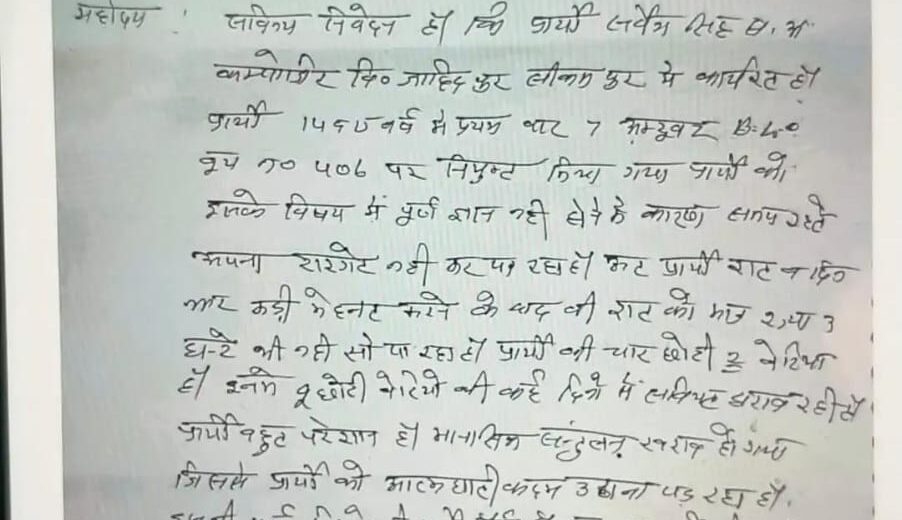 महोदय :
सविनय निवेदन है कि प्रार्थी सर्वेश सिंह स. अ.
कम्पोजिट वि० जाहिदपुर सीकमपुर मे कार्यरत है।
प्रार्थी वर्ष मे प्रथम बार 7 अक्टूबर B.L.O
बूथ न० 406 पर नियुक्त किया गया प्रार्थी को
इसके विषय में पूर्ण ज्ञान नही होने के कारण समय रहते
अपना टारगेट नही कर पा रहा हैं प्रार्थी रात व दिन
कड़ी मेहनत करने के बाद भी रात को मात्र 2 या 3
घन्टे भी नही सो पा रहा हैं प्रार्थी की चार छोटी 2 बेटियां
है इनमे 2 छोटी बेटियो की कई दिनो से तबियत खराब रही हैं
प्रार्थी बहुत परेशान है। मानसिक सन्तुलन खराब हो गया
जिससे प्रार्थी को आत्मघाती कदम उठाना पड़ रहा हैं।